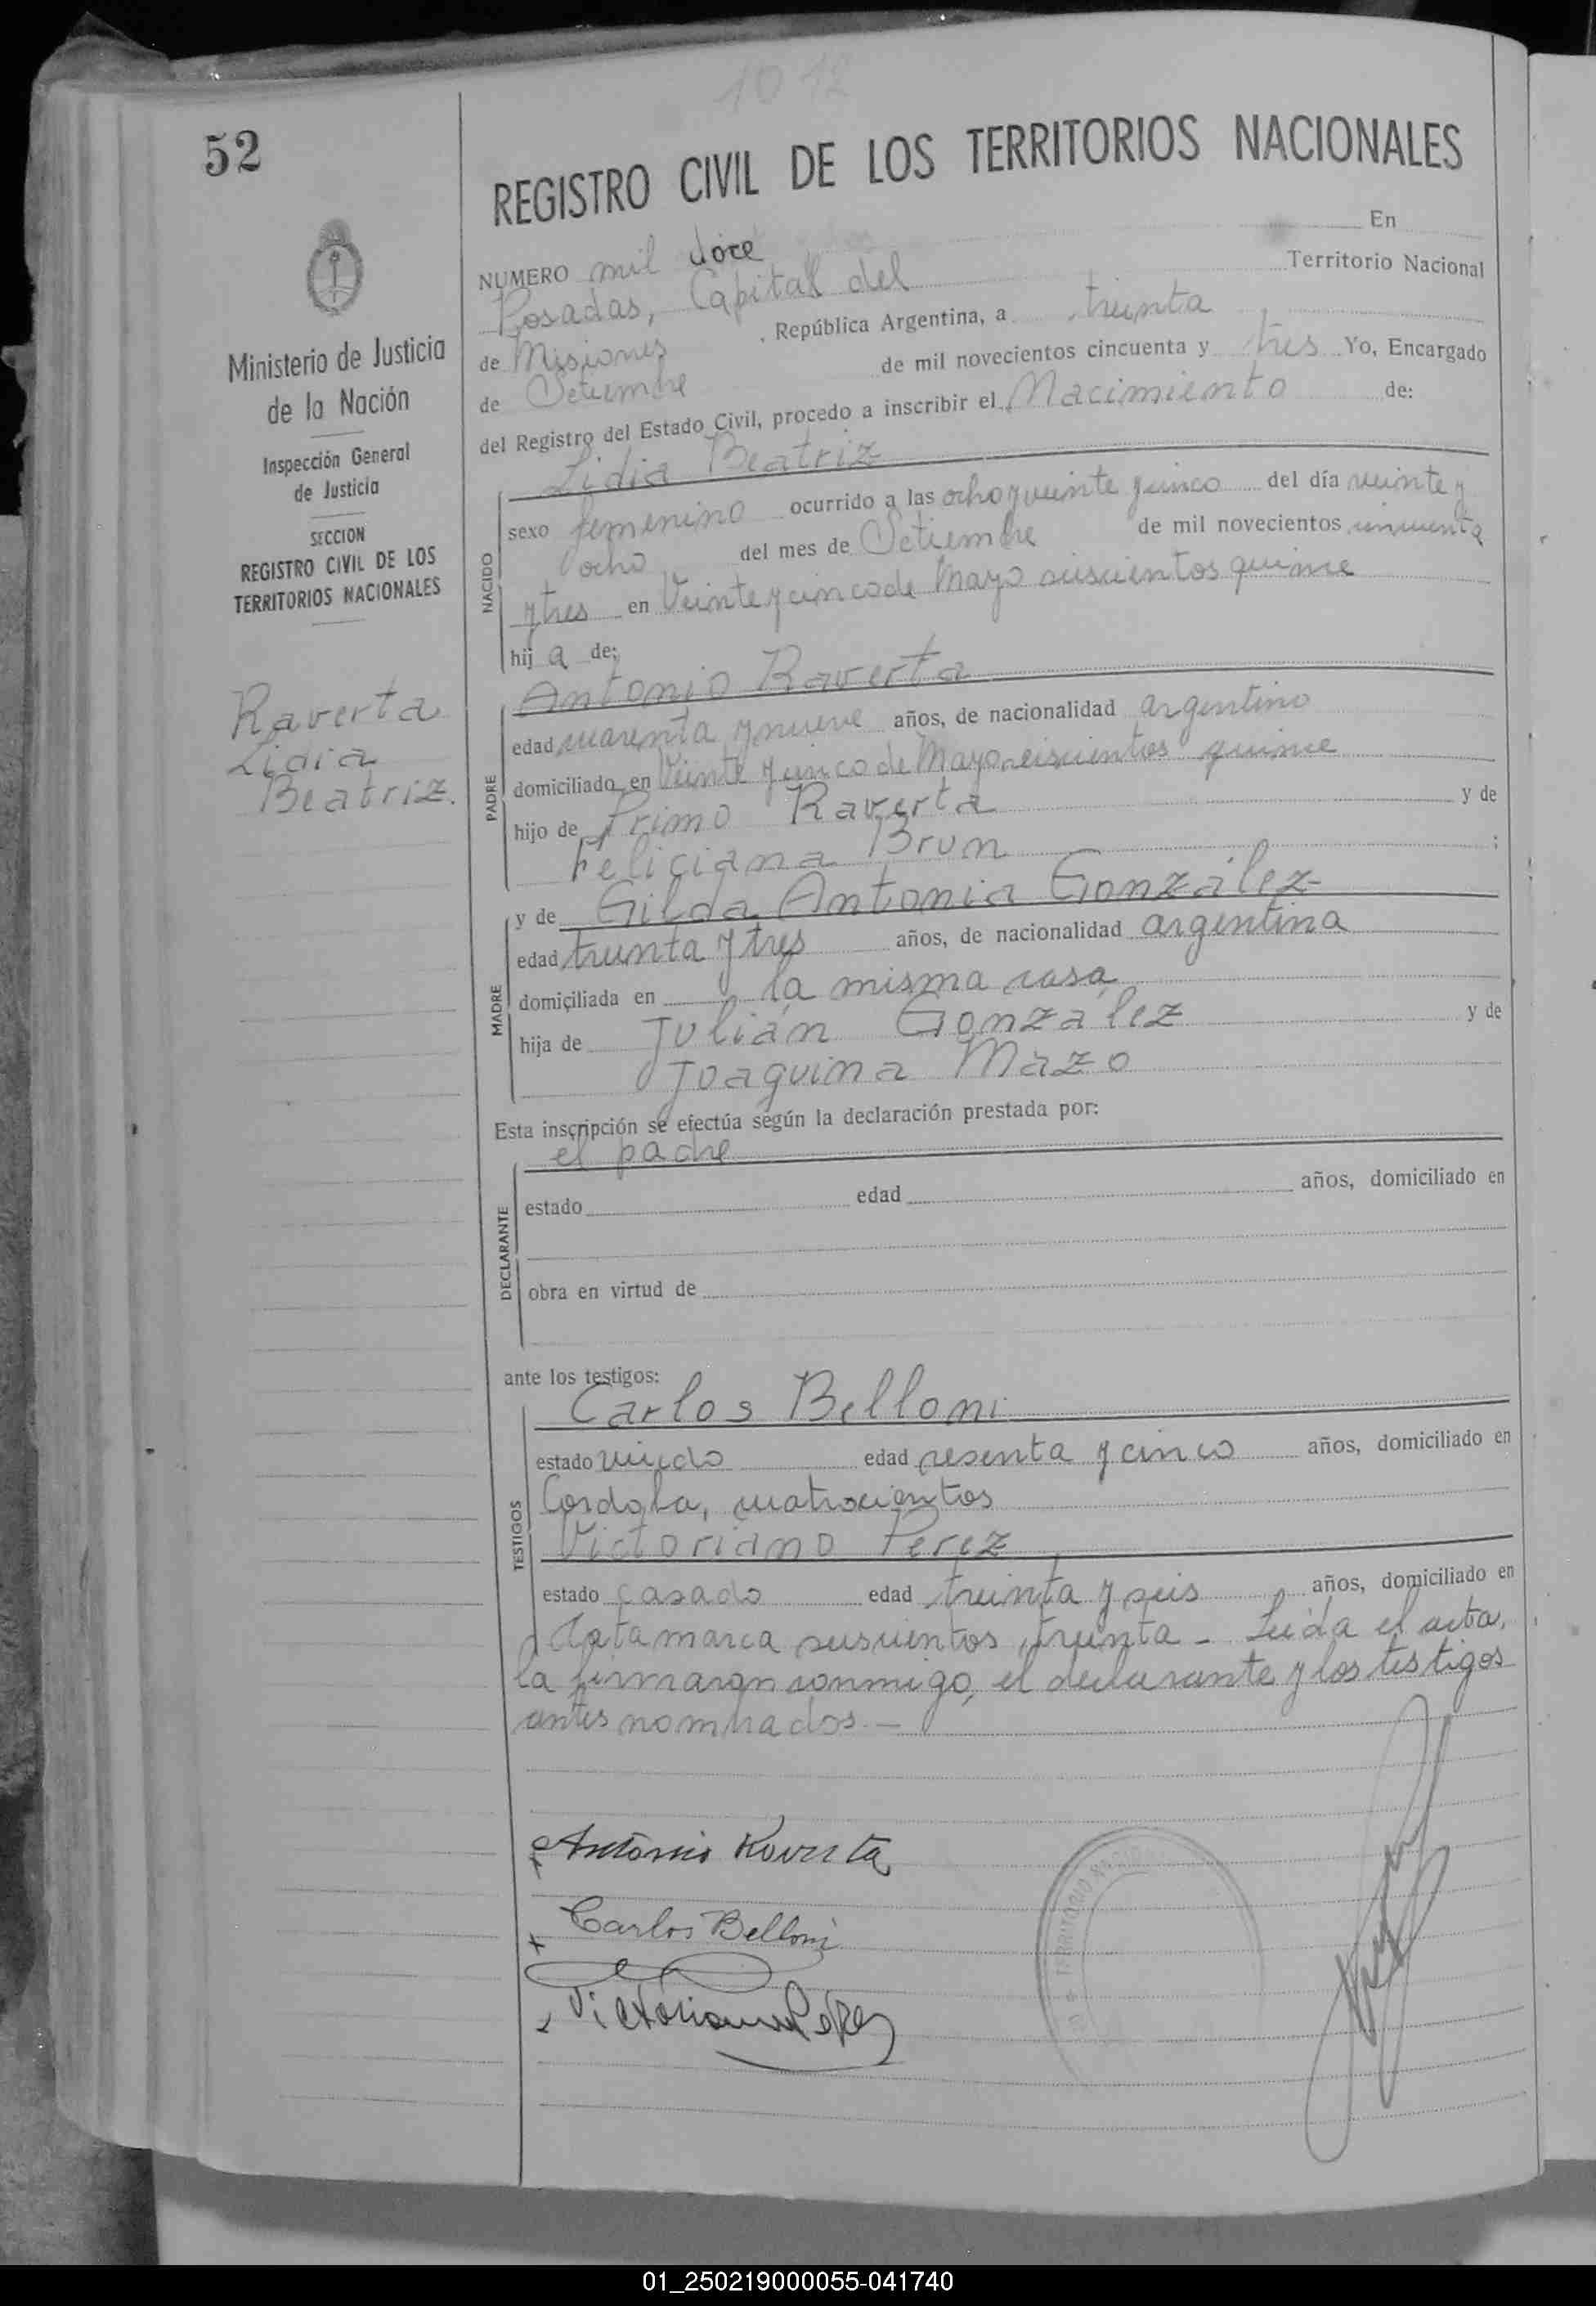 10 12
52
REGISTRO CIVIL DE LOS TERRITORIOS NACIONALES
NUMERO mil doce En
Posadas, Capital del Territorio Nacional
de Misiones, República Argentina, a treinta
de Setiembre de mil novecientos cincuenta y tres Yo, Encargado
del Registro del Estado Civil, procedo a inscribir el Nacimiento de:
Ministerio de Justicia
de la Nación
Inspección General
de Justicia
SECCION
REGISTRO CIVIL DE LOS
TERRITORIOS NACIONALES
Raverta
Lidia
Beatriz.
NACIDO
Lidia Beatriz
sexo femenino ocurrido a las ocho y veinte y cinco del día veinte y
ocho del mes de Setiembre de mil novecientos cincuenta
y tres en Veinte y cinco de Mayo seiscientos quince
hij a de:
PADRE
Antonio Raverta
edad cuarenta y nueve años, de nacionalidad argentino
domiciliado en Veinte y cinco de Mayo seiscientos quince
hijo de Primo Raverta y de
Feliciana Brun :
MADRE
y de Gilda Antonia González
edad treinta y tres años, de nacionalidad argentina
domiciliada en la misma casa
hija de Julián González y de
Joaquina Mazo
Esta inscripción se efectúa según la declaración prestada por:
DECLARANTE
el padre
estado edad años, domiciliado en
obra en virtud de
ante los testigos:
TESTIGOS
Carlos Belloni
estado viudo edad sesenta y cinco años, domiciliado en
Cordoba, cuatrocientos
Victoriano Perez
estado casado edad treinta y seis años, domiciliado en
Catamarca seiscientos treinta - Leida el acta,
la firmaron conmigo, el declarante y los testigos
antes nombrados. -
Antonio Raverta
Carlos Belloni
Victoriano Perez
TERRITORIO
01_250219000055-041740